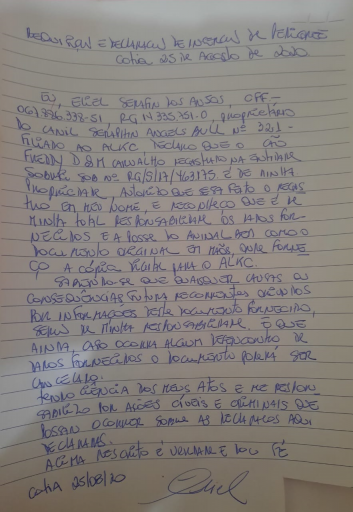 Requisição e declaração de interesse de pedigree
Cotia 25 de Agosto de 2020
Eu, Eliel Serafim dos Anjos, CPF-
061.886.338-51, RG 19335.751-0, proprietário
do Canil Seraphin Angels Bull nº 321-
filiado ao ALKC declaro que o cão
Fueddy D&M Carvalho registrato na entidade
Sobraci sob nº RG/S/17/463175 é de minha
propriedade, autorizo que seja feito o regis
tro em meu nome, e reconheço que é de
minha total responsabilidade os dados for-
necidos e a posse do animal bem como o
documento original em mãos, qual forne
ço a cópia digital para o ALKC.
Sabendo-se que quaisquer causas ou
consequências futura recorrentes oriundos
por informações deste documento fornecido,
serão de minha responsabilidade. E que
ainda, caso ocorra algum desencontro de
dados fornecidos o documento poderá ser
cancelado.
Tenho ciência dos meus atos e me respon-
sabilizo por ações cíveis e criminais que
possam ocorrer sobre as declarações aqui
declaradas.
Acima descrito é verdade e dou fé
Cotia 25/08/20